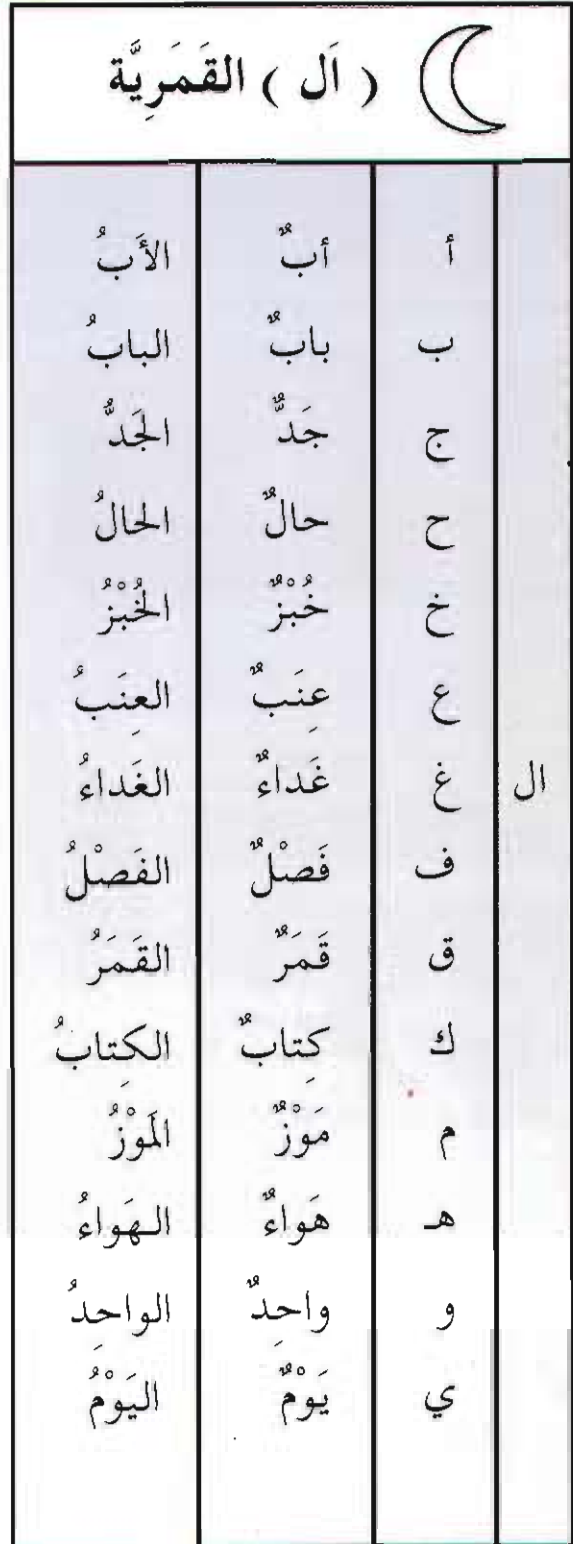 ( اَل ) القَمَرِيَّة
أ أبٌ الأَبُ
ب بابٌ البابُ
ج جَدٌّ الجَدُّ
ح حالٌ الحالُ
خ خُبْزٌ الخُبْزُ
ع عِنَبٌ العِنَبُ
ال غ غَداءٌ الغَداءُ
ف فَصْلٌ الفَصْلُ
ق قَمَرٌ القَمَرُ
ك كِتابٌ الكِتابُ
م مَوْزٌ المَوْزُ
هـ هَواءٌ الـهَواءُ
و واحِدٌ الواحِدُ
ي يَوْمٌ اليَوْمُ